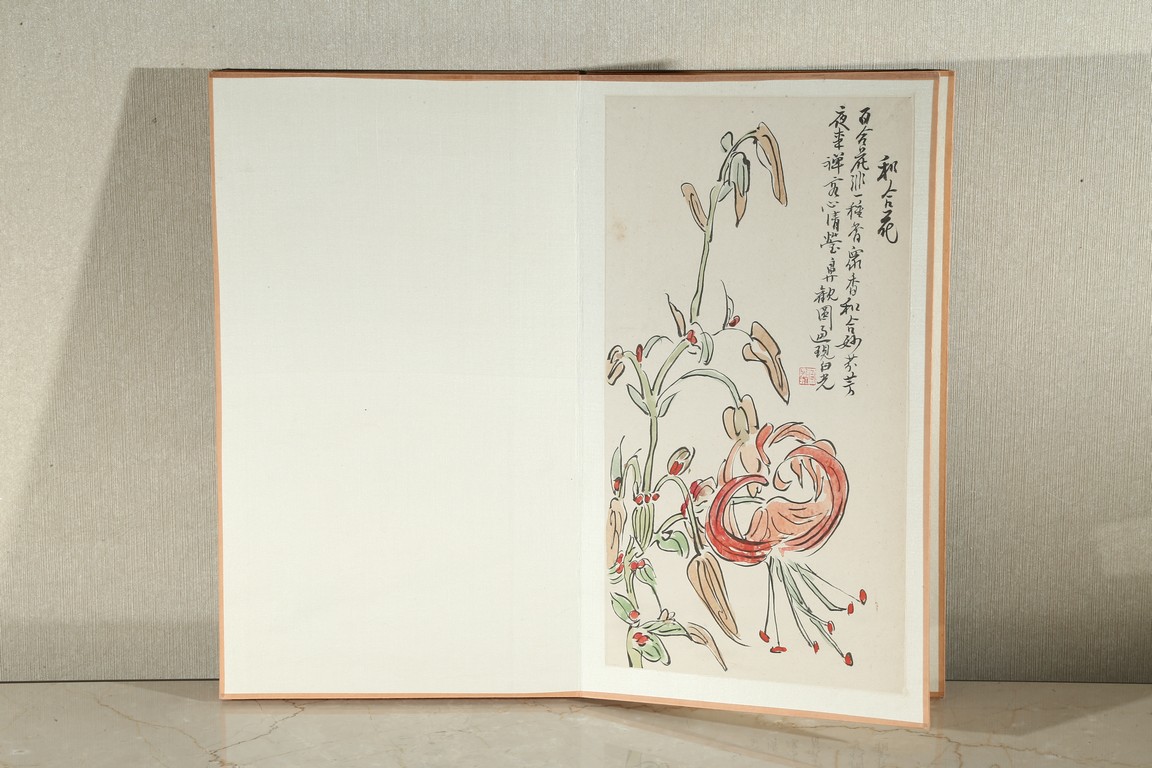 和合花
百合花非一種香衆香和合妙芬芳
夜來禪客心清瑩鼻觀圓通現白光